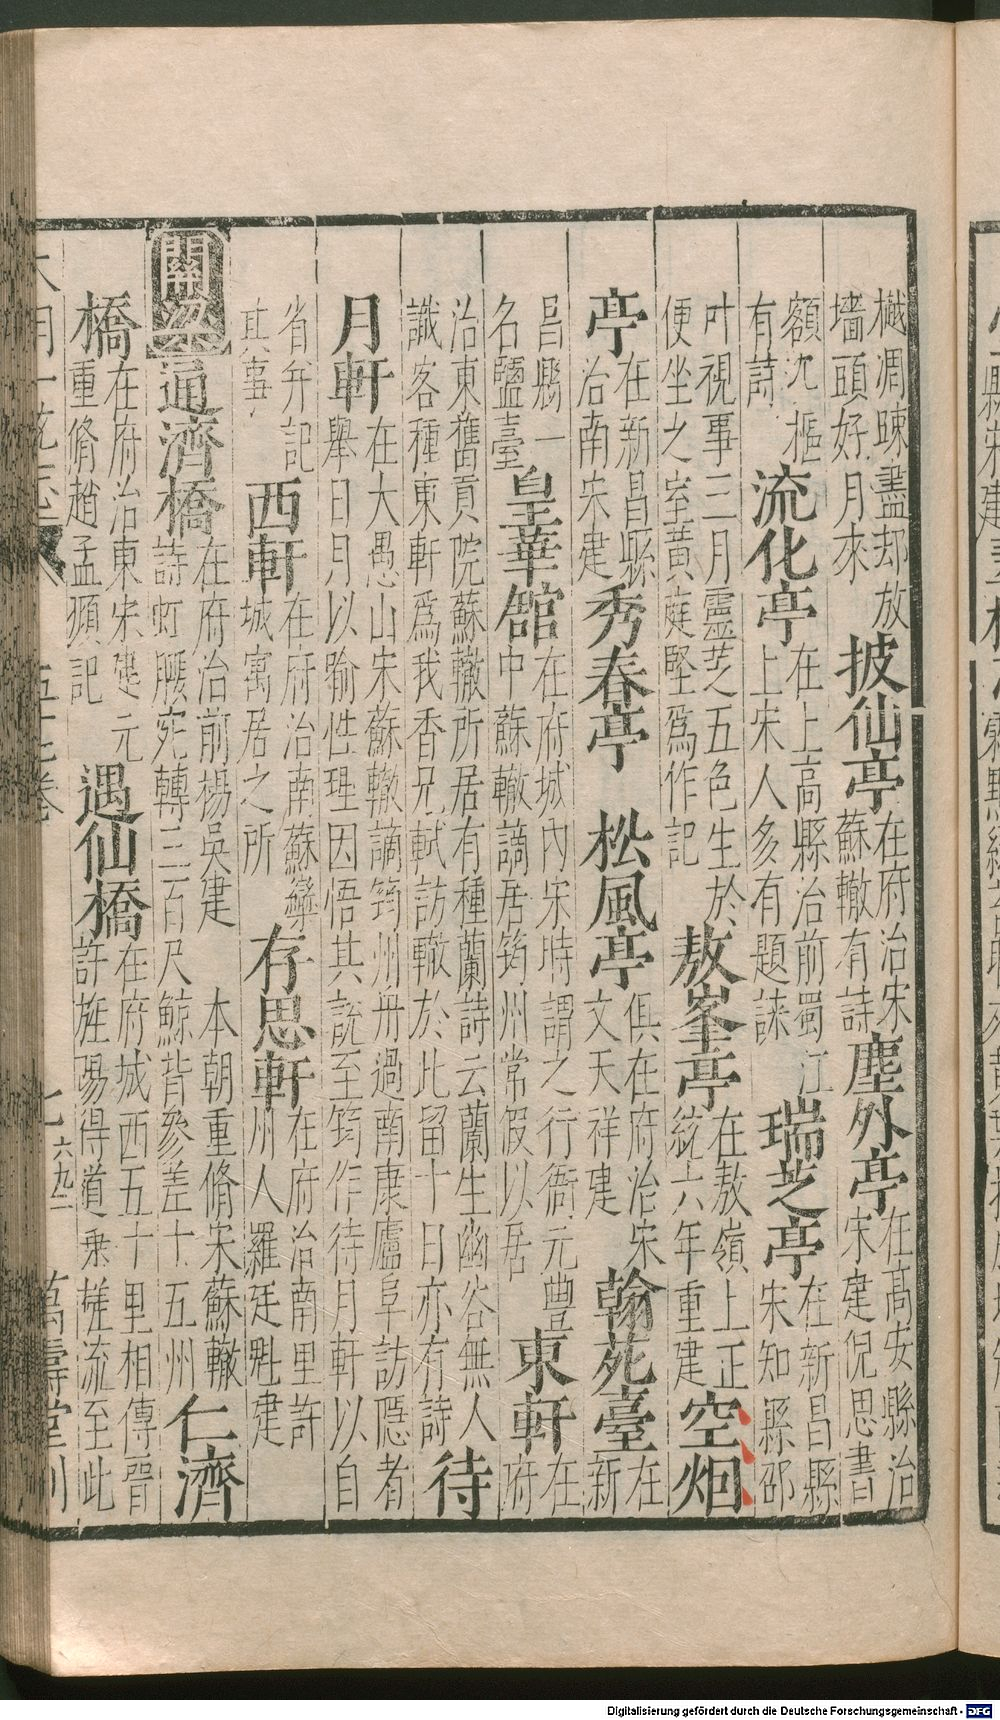 樾凋暕盡却放
墻頭好月來
披仙亭
在府治宋
蘇轍有詩
塵外亭
在高安縣治
宋建倪思書
額沈樞
有詩
流化亭
在上高縣治前蜀江
上宋人多有題詠
瑞芝亭
在新昌縣
宋知縣邵
叶視事三月靈芝五色生於
便坐之室黃庭堅爲作記
敖峯亭
在敖嶺上正
統六年重建
空烟
亭
在新昌縣
治南宋建
秀春亭
松風亭
俱在府治宋
文天祥建
翰苑臺
在
新
昌縣一
名鹽臺
皇華館
在府城內宋時謂之行衙元豐
中蘇轍謫居筠州常假以居
東軒
在
府
治東舊貢院蘇轍所居有種蘭詩云蘭生幽谷無人
識客種東軒爲我香兄軾訪轍於此留十日亦有詩
待
月軒
在大愚山宋蘇轍謫筠州舟過南康廬阜訪隱者
舉日月以踰性理因悟其說至筠作待月軒以自
省幷記
其事
西軒
在府治南蘇欒
城寓居之所
存思軒
在府治南里許
州人羅廷魁建
關梁
通濟橋
在府治前楊吳建 本朝重脩宋蘇轍
詩虹腰宛轉三百尺鯨背參差十五州
仁濟
橋
在府治東宋建元
重脩趙孟頫記
遇仙橋
在府城西五十里相傳晉
許旌陽得道乘槎流至此
大明一統志
五十七卷
七
六九二
萬壽堂刊
Digitalisierung gefördert durch die Deutsche Forschungsgemeinschaft - DFG